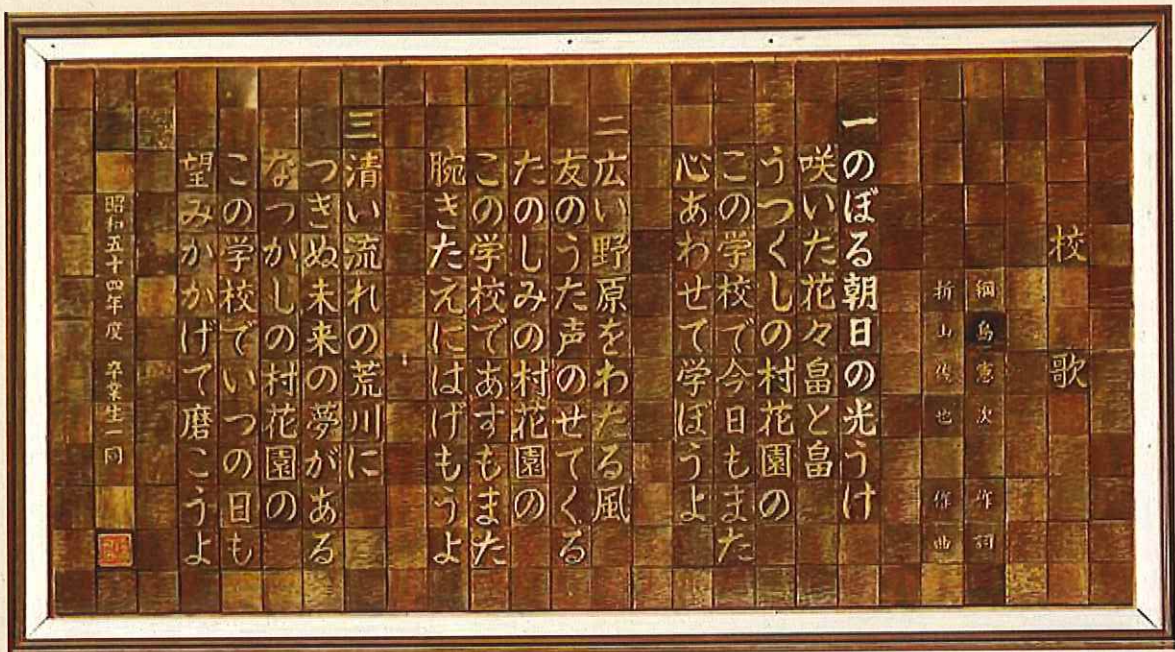 校歌
綱島憲次 作詞
折山俊也 作曲
一のぼる朝日の光うけ
咲いた花々畠と畠
うつくしの村花園の
この学校で今日もまた
心あわせて学ぼうよ
二広い野原をわたる風
友のうた声のせてくる
たのしみの村花園の
この学校であすもまた
腕きたえにはげもうよ
三清い流れの荒川に
つきぬ未来の夢がある
なつかしの村花園の
この学校でいつの日も
望みかかげて磨こうよ
昭和五十四年度 卒業生一同